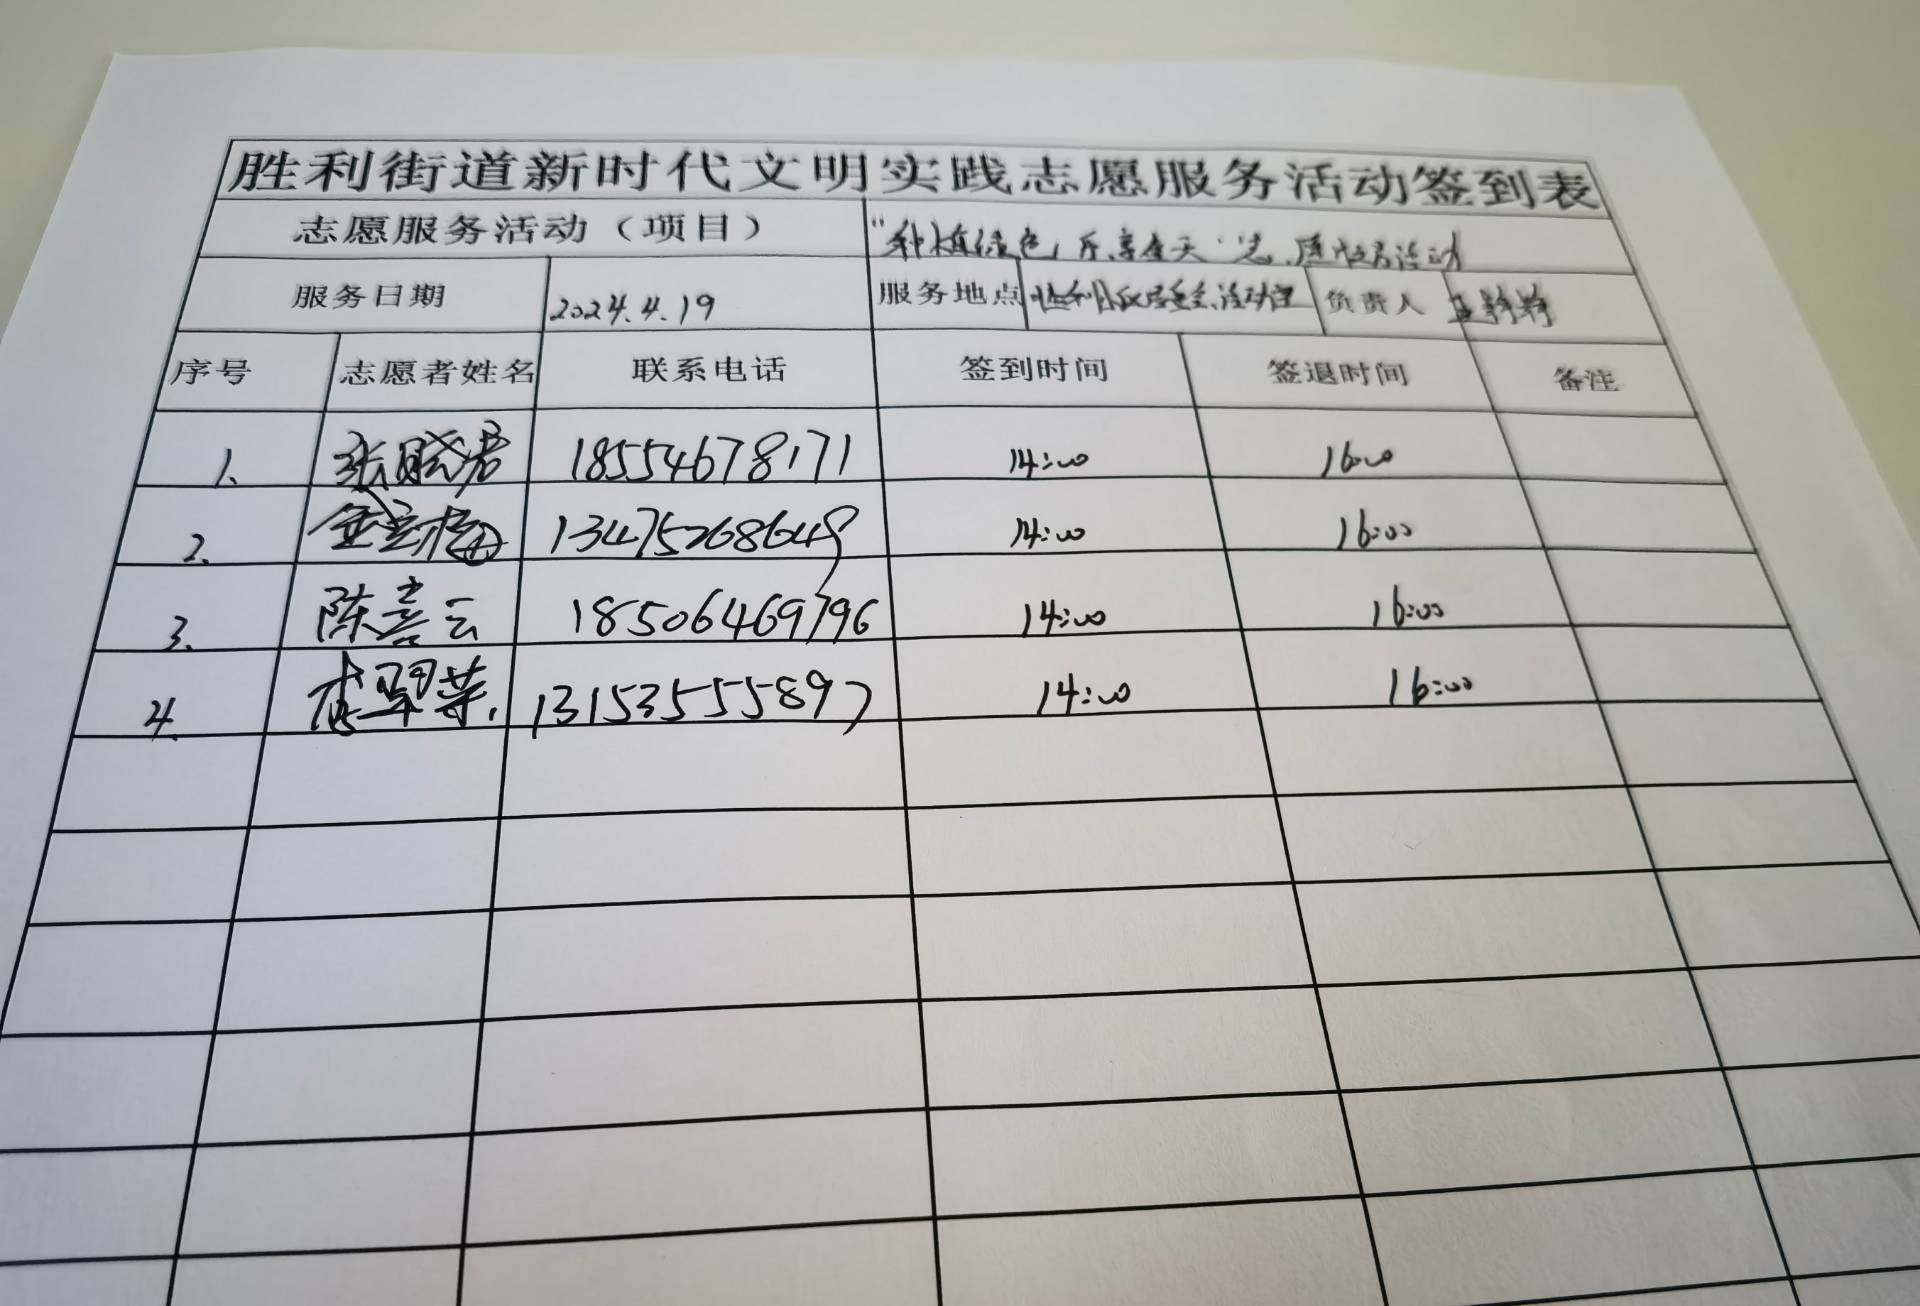 胜利街道新时代文明实践志愿服务活动签到表
志愿服务活动（项目） "种植绿色,乐享春天"志愿服务活动
服务日期 2024.4.19 服务地点 负责人
序号 志愿者姓名 联系电话 签到时间 签退时间 备注
1. 张晓君 18554678171 14:00 16:00
2. 13475268649 14:00 16:00
3. 陈喜云 18506469796 14:00 16:00
4. 翠荣. 13153555897 14:00 16:00